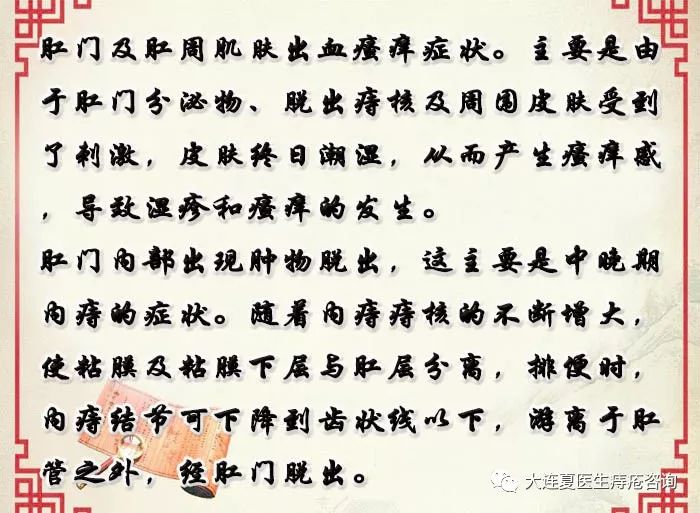 肛门及肛周肌肤出血瘙痒症状。主要是由
于肛门分泌物、脱出痔核及周围皮肤受到
了刺激，皮肤终日潮湿，从而产生瘙痒感
，导致湿疹和瘙痒的发生。
肛门内部出现肿物脱出，这主要是中晚期
内痔的症状。随着内痔痔核的不断增大，
使粘膜及粘膜下层与肛层分离，排便时，
内痔结节可下降到齿状线以下，游离于肛
管之外，经肛门脱出。
大连夏医生痔疮咨询